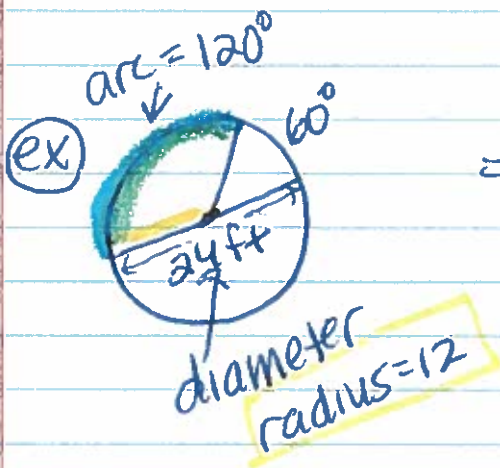 arc = 120°
60°
ex
=
24ft
diameter
radius=12